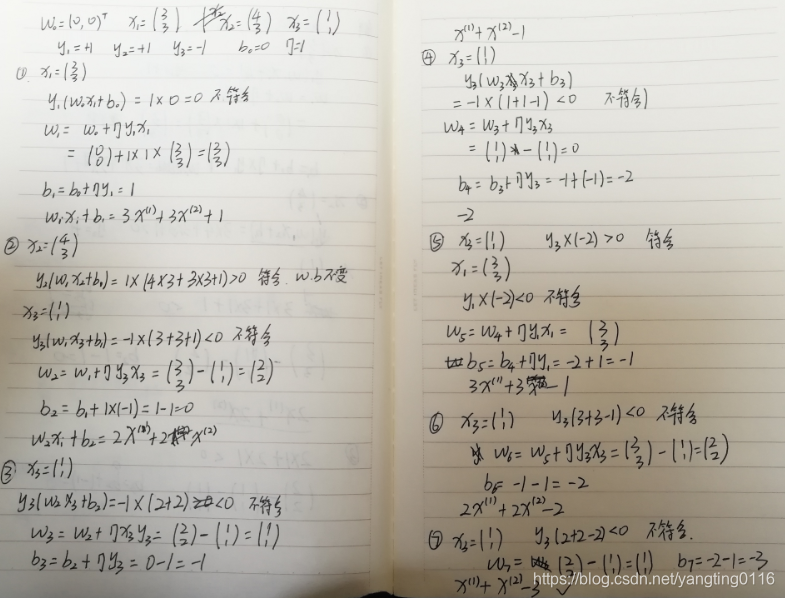 w₀=(0,0)ᵀ x₁=(3 3) x₂=(4 3) x₃=(1 1)
y₁=+1 y₂=+1 y₃=-1 b₀=0 η=1
① x₁=(3 3)
y₁(w₀x₁+b₀)=1×0=0 不符合
w₁=w₀+ηy₁x₁
=(0 0)+1×1×(3 3)=(3 3)
b₁=b₀+ηy₁=1
w₁x₁+b₁=3x⁽¹⁾+3x⁽²⁾+1
② x₂=(4 3)
y₂(w₁x₂+b₀)=1×(4×3+3×3+1)>0 符合. w.b不变
x₃=(1 1)
y₃(w₁x₃+b₁)=-1×(3+3+1)<0 不符合
w₂=w₁+ηy₃x₃=(3 3)-(1 1)=(2 2)
b₂=b₁+1×(-1)=1-1=0
w₂x₁+b₂=2x⁽¹⁾+2x⁽²⁾
③ x₃=(1 1)
y₃(w₂x₃+b₂)=-1×(2+2)<0 不符合
w₃=w₂+ηx₃y₃=(2 2)-(1 1)=(1 1)
b₃=b₂+ηy₃=0-1=-1
x⁽¹⁾+x⁽²⁾-1
④ x₃=(1 1)
y₃(w₃x₃+b₃)
=-1×(1+1-1)<0 不符合
w₄=w₃+ηy₃x₃
=(1 1)-(1 1)=0
b₄=b₃+ηy₃=-1+(-1)=-2
-2
⑤ x₃=(1 1) y₃×(-2)>0 符合
x₁=(3 3)
y₁×(-2)<0 不符合
w₅=w₄+ηy₁x₁=(3 3)
b₅=b₄+ηy₁=-2+1=-1
3x⁽¹⁾+3 -1
⑥ x₃=(1 1) y₃(3+3-1)<0 不符合
w₆=w₅+ηy₃x₃=(3 3)-(1 1)=(2 2)
b₆=-1-1=-2
2x⁽¹⁾+2x⁽²⁾-2
⑦ x₃=(1 1) y₃(2+2-2)<0 不符合.
w₇=(2 2)-(1 1)=(1 1) b₇=-2-1=-3
x⁽¹⁾+x⁽²⁾-3
https://blog.csdn.net/yangting0116